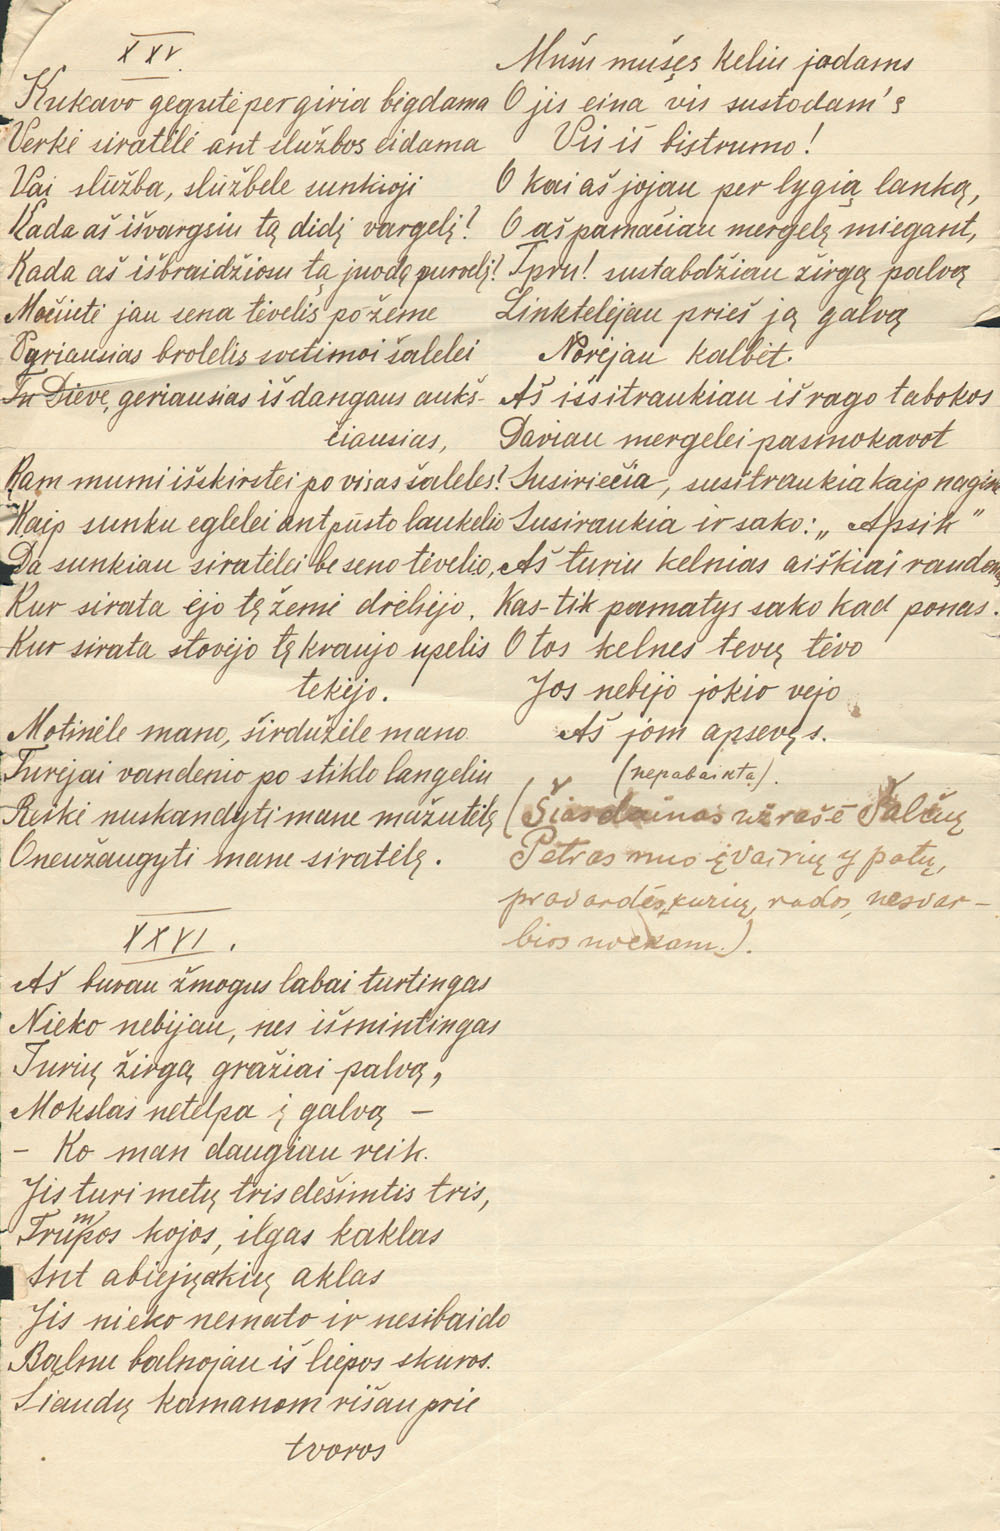 XXV.
Kukavo gegutė per giria bėgdama
Verkė siratėlė ant službos eidama
Vai služba, službele sunkioji
Kada aš išvargsiu tą didį vargelį?
Kada aš išbraidžiosu tą juodą purvelį?
Močiutė jau sena tėvelis po žeme
Vyriausias brolelis svetimoi šalelei
Tu Dieve, geriausias iš dangaus aukš-
čiausias,
Kam mumi išskirstei po visas šaleles?
Kaip sunku eglelei ant pūsto laukelio
Da sunkiau siratėlei be seno tėvelio,
Kur sirata ėjo tę žemė drebėjo.
Kur sirata stovėjo tę kraujo upelis
tekėjo.
Motinėle mano, širdužėle mano
Turėjai vandenio po stiklo langeliu
Reikė nuskandyti mane mažutėlę
O neužaugyti mane siratėlę.
XXVI.
Aš buvau žmogus labai turtingas
Nieko nebijau, nes išmintingas
Turių žirgą gražiai palvą,
Mokslas netelpa į galvą –
– Ko man daugiau reik.
Jis turi metų trisdešimtis tris,
Trumpos kojos, ilgas kaklas
Ant abiejų akių aklas
Jis nieko nemato ir nesibaido
Balnu balnojau iš liepos skuros.
Šiaudų kamanom rišau prie
tvoros
Mušu mušęs keliu jodams
O jis eina vis sustodam's
Vis iš bistrumo!
O kai aš jojau per lygią lanką,
O aš pamačiau mergelę miegant,
Tpru! sustabdžiau žirgą palvą
Linktelėjau prieš ją galvą
Norėjau kalbėt.
Aš išsitraukiau iš rago tabokos
Daviau mergelei pasmokavot
Susiriečia, susitraukia kaip
Susiraukia ir sako: „Apsik"
Aš turiu kelnias aiškiai
Kas-tik pamatys sako kad ponas.
O tos kelnes tevų tėvo
Jos nebijo jokio vėjo
Aš jom apsevęs.
(nepabaikta).
(Šias dainas užrašė Šalčių
Petras nuo įvairių ypatų,
pravardės, kurių, rados, nesvar-
bios niekam.).